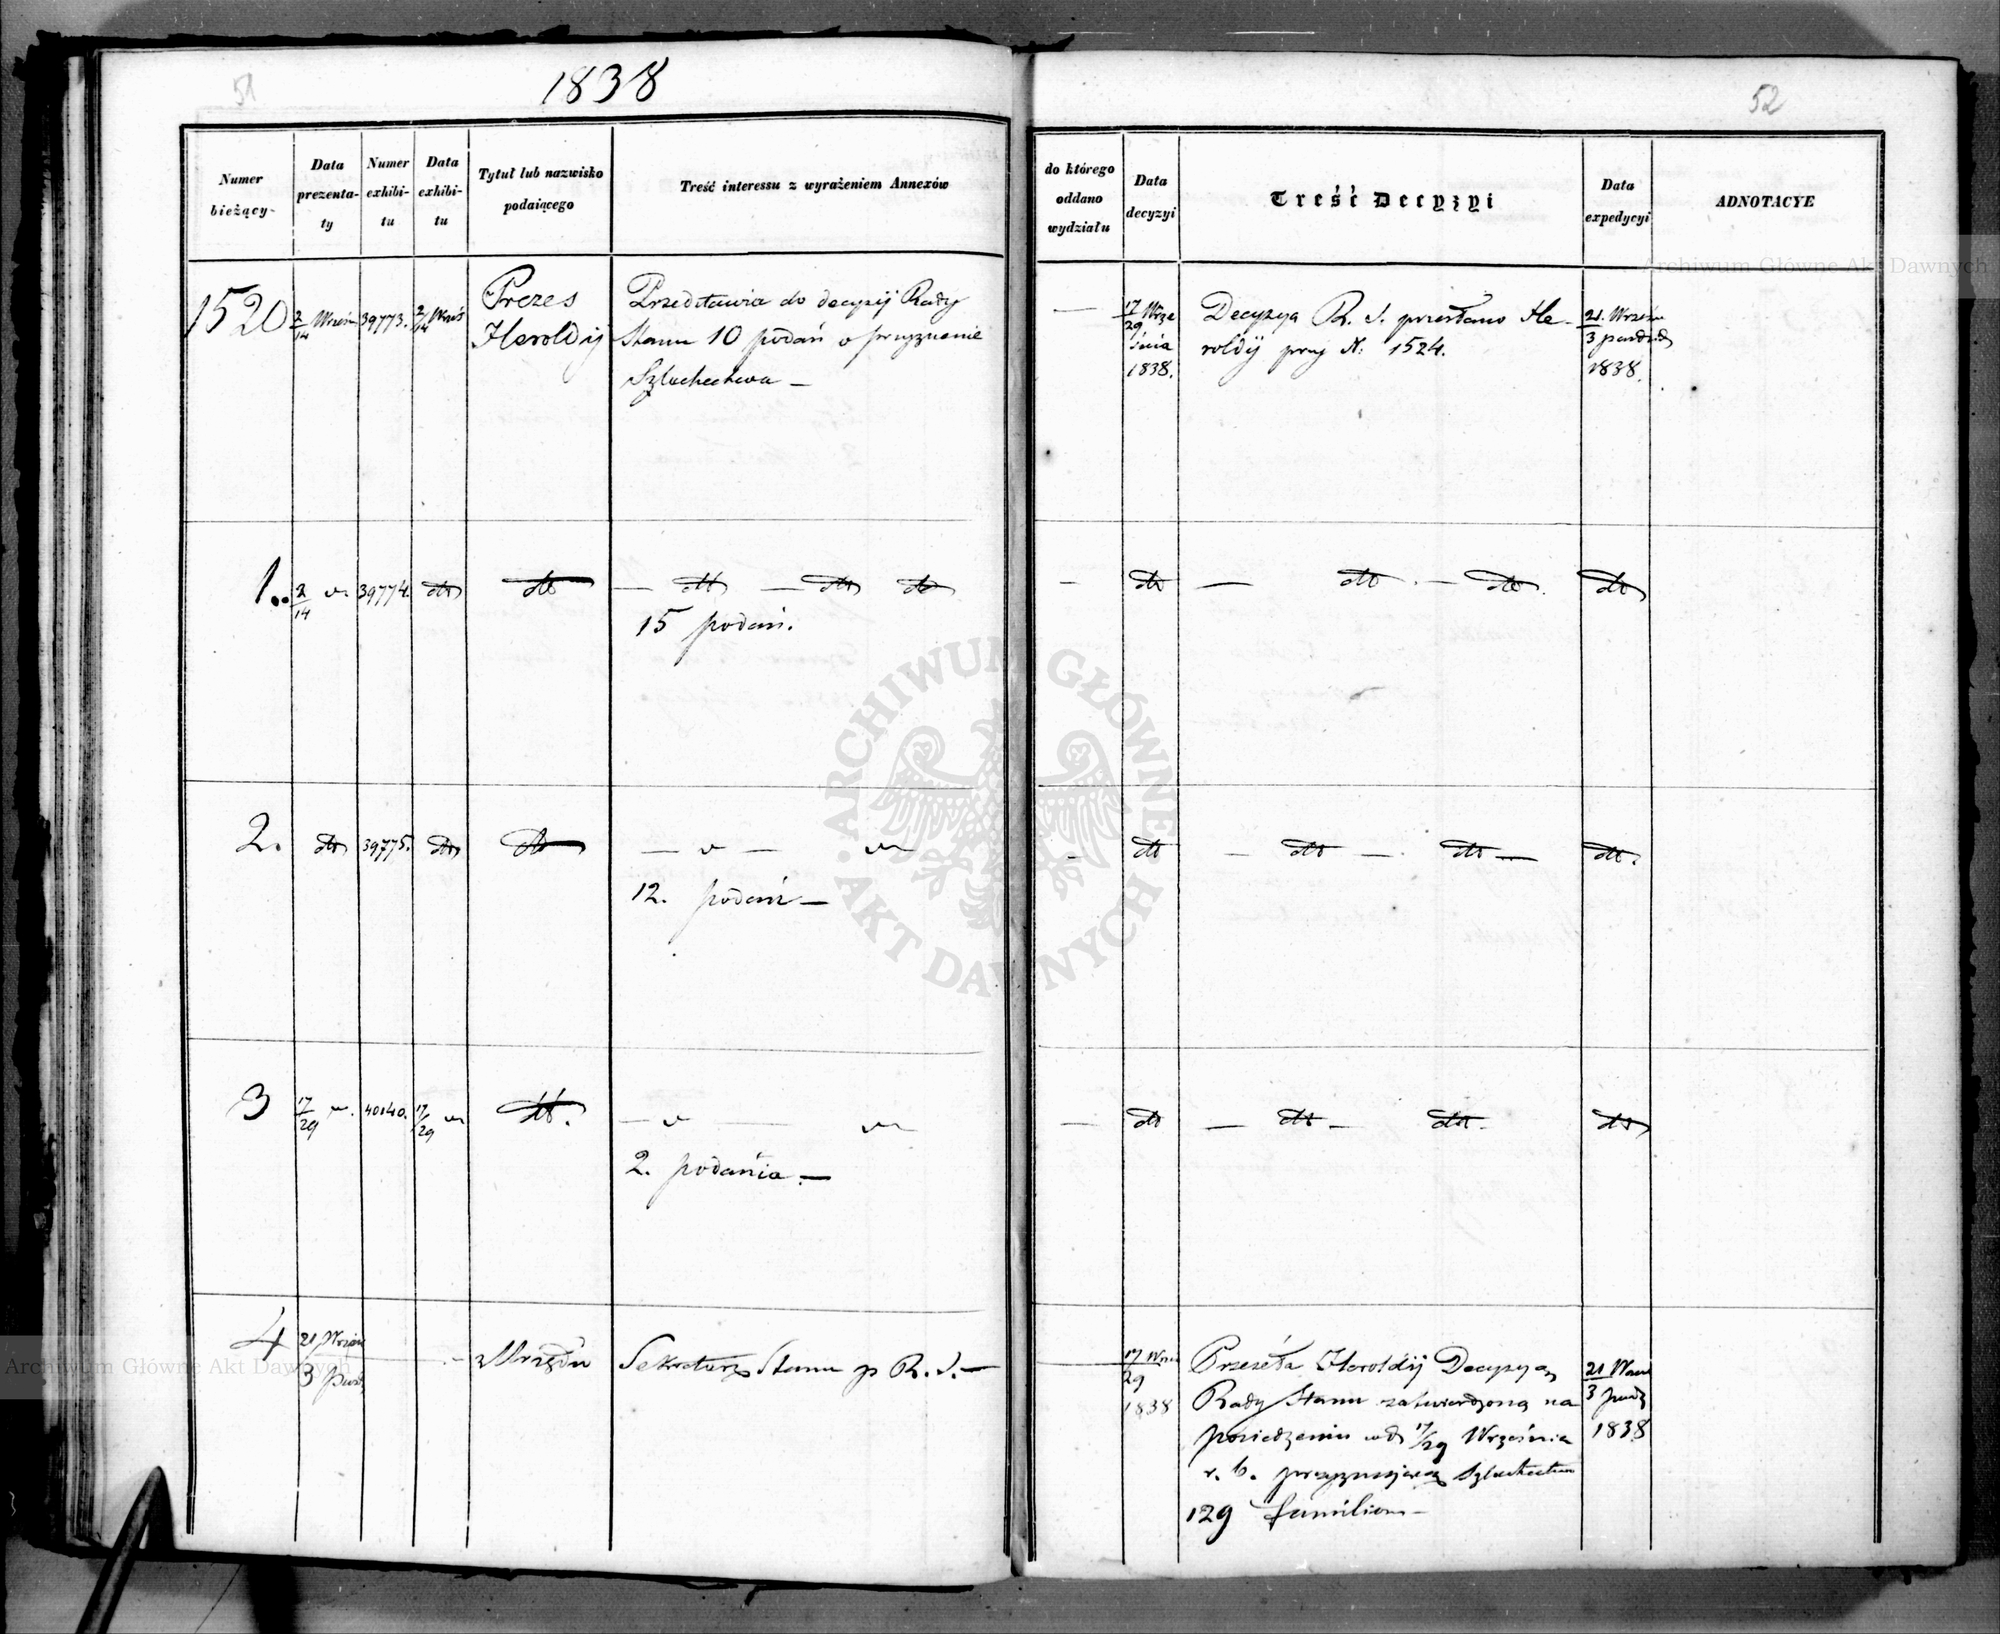 51
1838
Numer bieżący.
Data prezenta-ty
Numer exhibi-tu
Data exhibi-tu
Tytuł lub nazwisko podaiącego
Treść interessu z wyrażeniem Annexów
1520
2/14 Wrześn
39773.
2/14 Wrześ
Prezes
Heroldij
Przedstawia do decyzij Rady
Stanu 10 podań o przyznanie
Szlachectwa —
1..
2/14 "
39774.
dto
dto
— dto — dto dto
15 podań.
2.
dto
39775.
dto
dto
— " — "
12. podań —
3
17/29 "
40140.
17/29 "
dto.
— " — "
2. podania. —
4
21 Wrześn
3 Paźd
z Urzędu
Sekretarz Stanu p R. S. —
52
do którego oddano wydziału
Data decyzyi
Treść Decyzyi
Data expedycyi
ADNOTACYE
—
17/29 Wrze
śnia
1838.
Decyzya R. S. przesłano He-
roldij przy N: 1524.
21. Wrześn
3 październ
1838.
—
dto
— dto. — dto.
dto
—
dto
— dto — dto —
dto.
—
dto
— dto — dto —
dto
17 Wrze
29
1838
Przesyła Heroldij Decyzyą
Rady Stanu zatwierdzoną na
posiedzeniu w d. 17/29 Września
r. b. przyznającą Szlachectwo
129 familiom —
21 Wrześ
3 paźd
1838
Archiwum Główne Akt Dawnych
Archiwum Główne Akt Dawnych
ARCHIWUM GŁÓWNE · AKT DAWNYCH ·